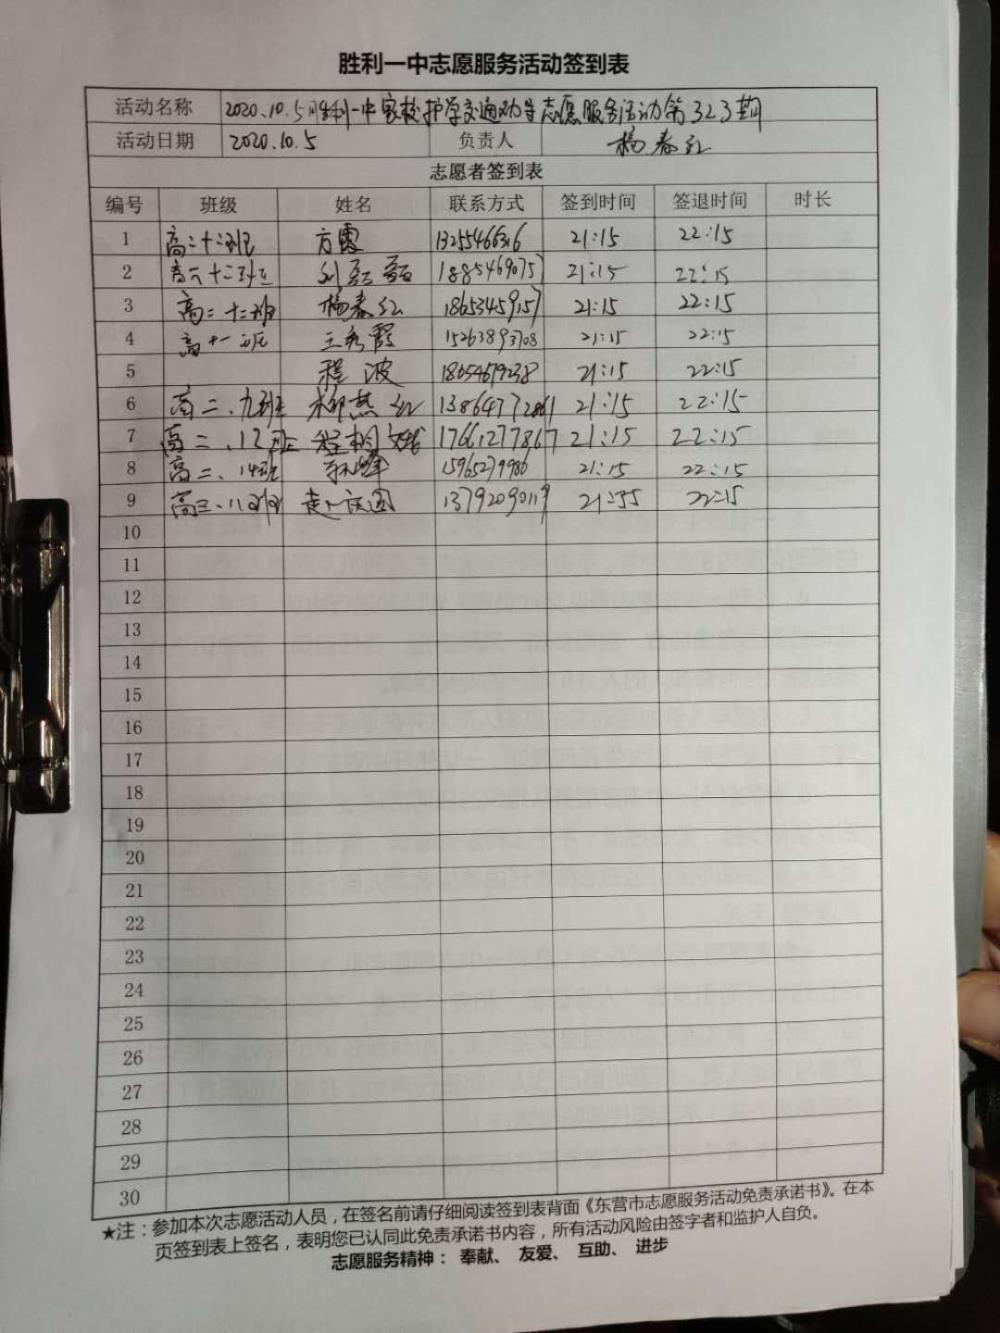 胜利一中志愿服务活动签到表
活动名称 2020.10.5胜利一中家校护学交通劝导志愿服务活动第323期
活动日期 2020.10.5 负责人 杨春红
志愿者签到表
编号 班级 姓名 联系方式 签到时间 签退时间 时长
1 高二十二班 方霞 21:15 22:15
2 十二班 刘磊磊 18854690757 21:15 22:15
3 高二十二班 杨春红 18653459157 21:15 22:15
4 高十一班 王秀霞 15263893708 21:15 22:15
5 程波 18654679238 21:15 22:15
6 高二、九班 柳燕红 13864772861 21:15 22:15
7 高二、12班 17661277867 21:15 22:15
8 高二、14班 15965279986 21:15 22:15
9 高三、11班 13792090119 21:55 22:15
10
11
12
13
14
15
16
17
18
19
20
21
22
23
24
25
26
27
28
29
30
★注：参加本次志愿活动人员，在签名前请仔细阅读签到表背面《东营市志愿服务活动免责承诺书》。在本
页签到表上签名，表明您已认同此免责承诺书内容，所有活动风险由签字者和监护人自负。
志愿服务精神： 奉献、 友爱、 互助、 进步